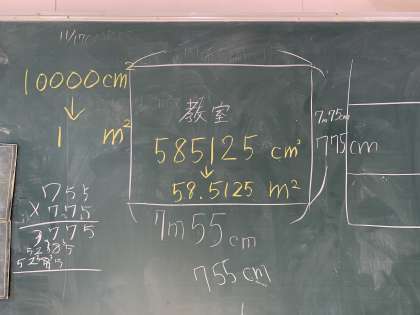 11/17
10000cm²
↓
1 m²
教室
585125 cm²
↓
58.5125 m²
7m75cm
775cm
7m55cm
755cm
755
×775
3775
5285
5285